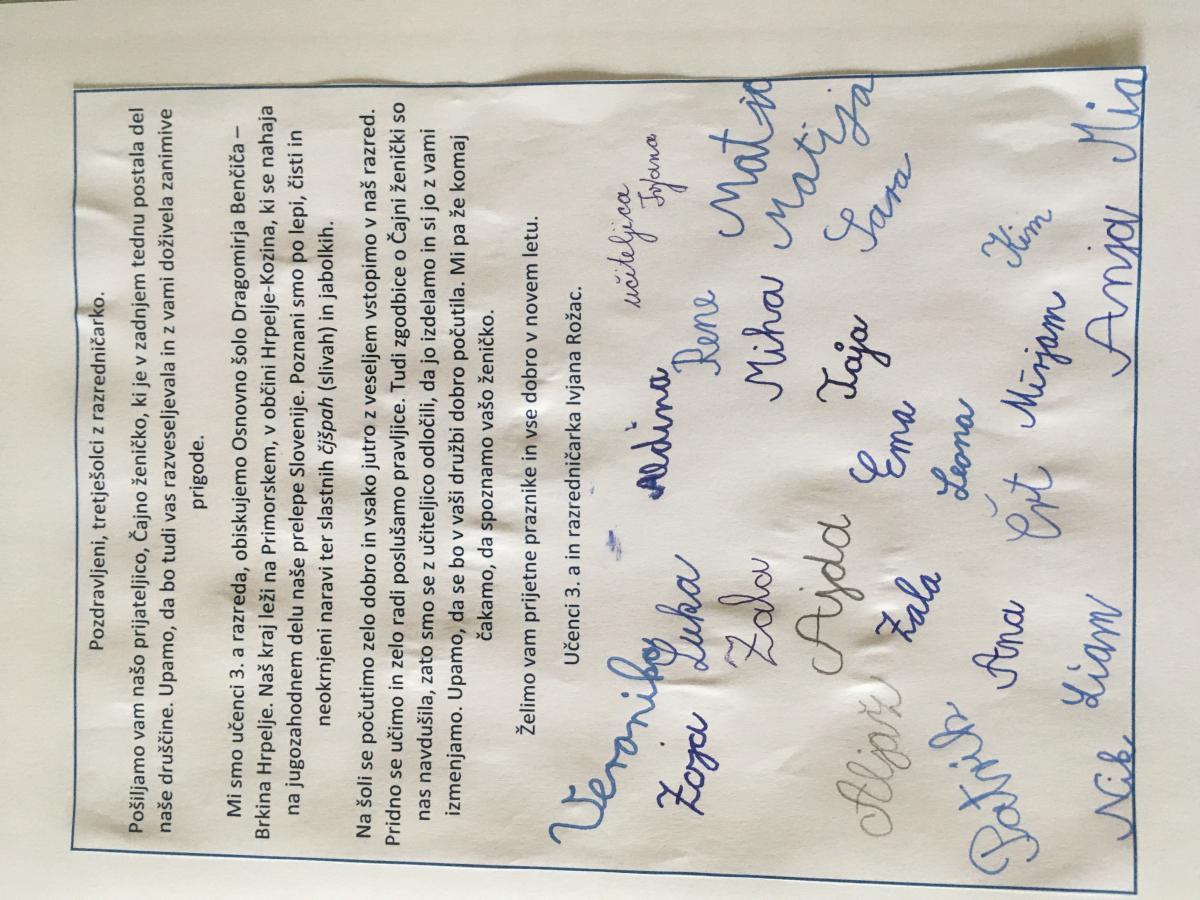 Pozdravljeni, tretješolci z razredničarko.
Pošiljamo vam našo prijateljico, Čajno ženičko, ki je v zadnjem tednu postala del
naše druščine. Upamo, da bo tudi vas razveseljevala in z vami doživela zanimive
prigode.
Mi smo učenci 3. a razreda, obiskujemo Osnovno šolo Dragomirja Benčiča –
Brkina Hrpelje. Naš kraj leži na Primorskem, v občini Hrpelje-Kozina, ki se nahaja
na jugozahodnem delu naše prelepe Slovenije. Poznani smo po lepi, čisti in
neokrnjeni naravi ter slastnih čjšpah (slivah) in jabolkih.
Na šoli se počutimo zelo dobro in vsako jutro z veseljem vstopimo v naš razred.
Pridno se učimo in zelo radi poslušamo pravljice. Tudi zgodbice o Čajni ženički so
nas navdušila, zato smo se z učiteljico odločili, da jo izdelamo in si jo z vami
izmenjamo. Upamo, da se bo v vaši družbi dobro počutila. Mi pa že komaj
čakamo, da spoznamo vašo ženičko.
Želimo vam prijetne praznike in vse dobro v novem letu.
Učenci 3. a in razredničarka Ivjana Rožac.
učiteljica
Ivjana
Veronika
Aldina
Zoja Luka Rene Matjo
Zala Miha Matija
Ajda Taja Sara
Aljaž Zala Ema
Leona Kim
Patrik Ana Črt Mirjam
Nik Liam Anja Mia